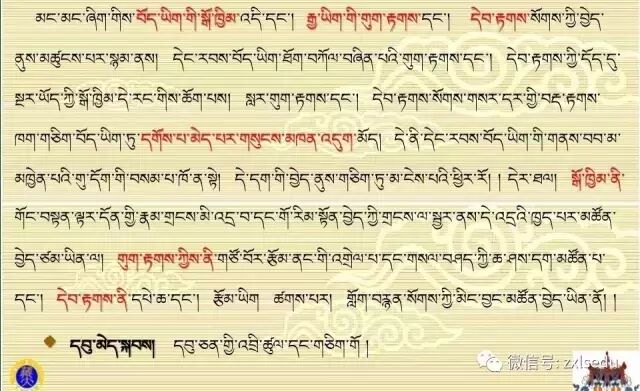 མང་མང་ཞིག་གིས་བོད་ཡིག་གི་སྒོ་ཁྱིམ་འདི་དང་། རྒྱ་ཡིག་གི་གུག་རྟགས་དང་། དེབ་རྟགས་སོགས་ཀྱི་བྱེད་
ནུས་མཚུངས་པར་སྙམ་ནས། དེང་རབས་བོད་ཡིག་ཐོག་བཀོལ་བཞིན་པའི་གུག་རྟགས་དང་། དེབ་རྟགས་ཀྱི་དོད་དུ་
སྔར་ཡོད་ཀྱི་སྒོ་ཁྱིམ་དེ་རང་གིས་ཆོག་པས། སླར་གུག་རྟགས་དང་། དེབ་རྟགས་སོགས་གསར་དར་གྱི་བརྡ་རྟགས་
ཁག་གཅིག་བོད་ཡིག་ཏུ་དགོས་པ་མེད་པར་གསུངས་མཁན་འདུག་མོད། དེ་ནི་དེང་རབས་བོད་ཡིག་གི་གནས་བབ་མ་
མཁྱེན་པའི་གུ་དོག་གི་བསམ་པ་ཁོ་ན་སྟེ། དེ་དག་གི་བྱེད་ནུས་གཅིག་ཏུ་མ་ངེས་པའི་ཕྱིར་རོ། ། དེར་ཐལ། སྒོ་ཁྱིམ་ནི་
གོང་བསྟན་ལྟར་དོན་གྱི་རྣམ་གྲངས་མི་འདྲ་བ་དང་གོ་རིམ་སྟོན་བྱེད་ཀྱི་གྲངས་ལ་སྦྱར་ནས་དེ་འདྲའི་ཁྱད་པར་མཚོན་
བྱེད་ཙམ་ཡིན་ལ། གུག་རྟགས་ཀྱིས་ནི་གཙོ་བོར་རྩོམ་ནང་གི་འགྲེལ་པ་དང་གསལ་བཤད་ཀྱི་ཆ་ཤས་དག་མཚོན་པ་
དང་། དེབ་རྟགས་ནི་དཔེ་ཆ་དང་། རྩོམ་ཡིག ཚགས་པར། གློག་བརྙན་སོགས་ཀྱི་མིང་བྱང་མཚོན་བྱེད་ཡིན་ནོ། །
དབུ་མེད་སྐབས། དབུ་ཅན་གྱི་འབྲི་ཚུལ་དང་གཅིག་གོ །
微信号: zxlsedu